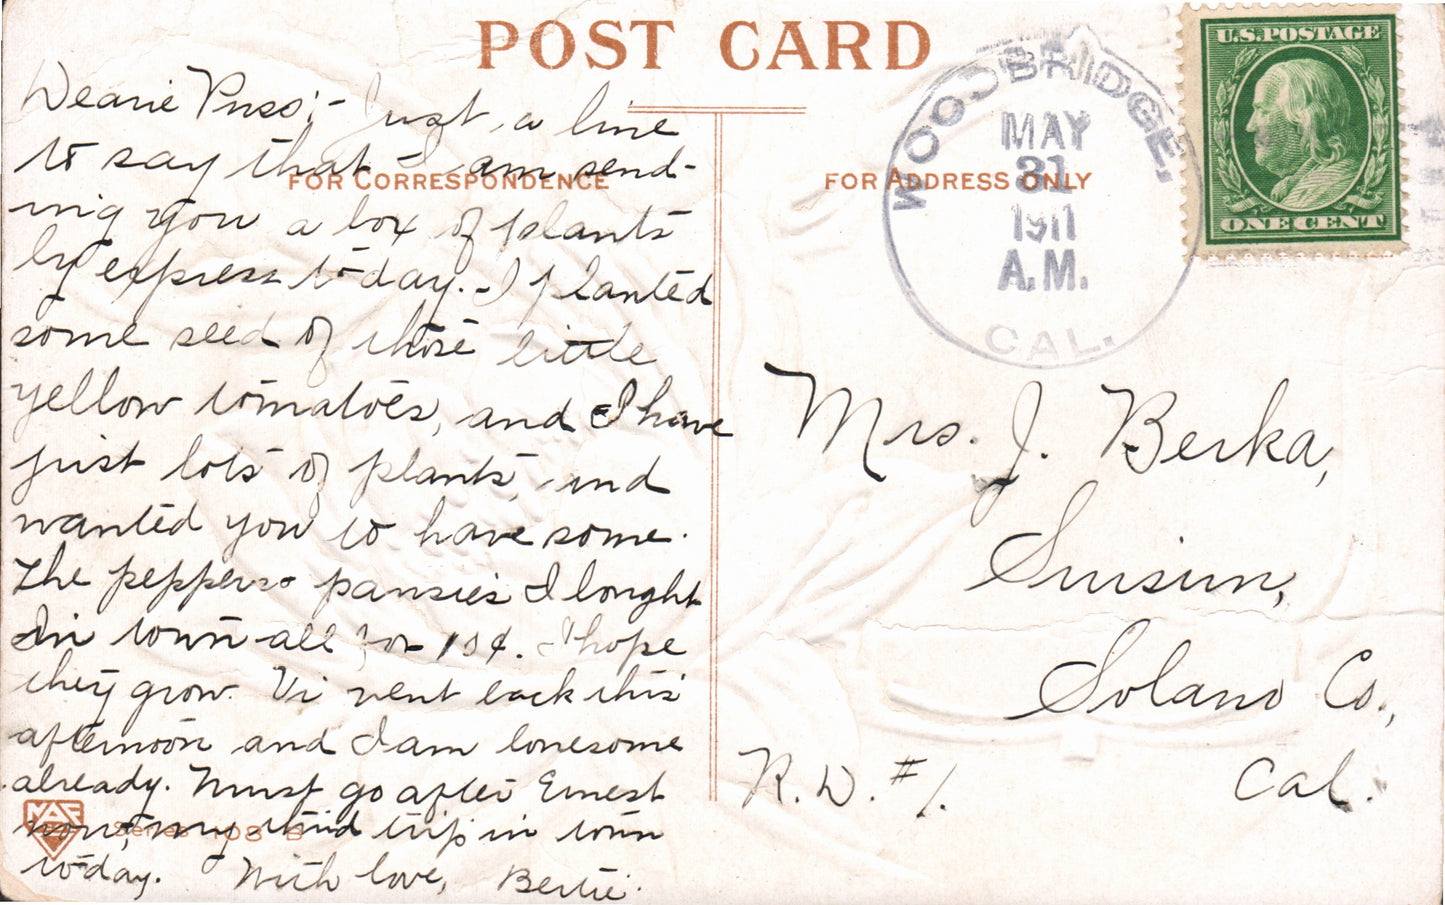 POST CARD
FOR CORRESPONDENCE
Dearie :- Just a line
to say that I am send-
ing you a box of plants
by express to-day. I planted
some seed of those little
yellow tomatoes, and I have
just lots of plants, and
wanted you to have some.
The peppers + pansies I bought
in town all for 15¢. I hope
they grow. Vi went back this
afternoon and I am lonesome
already. Must go after Ernest
now, my third trip in town
to-day. With love, Bertie.
Series 108 B
FOR ADDRESS ONLY
WOODBRIDGE,
MAY
31
1911
A.M.
CAL.
U.S. POSTAGE
ONE CENT
Mrs. J. Berka,
Suisun,
Solano Co.,
R.D. #1. Cal.